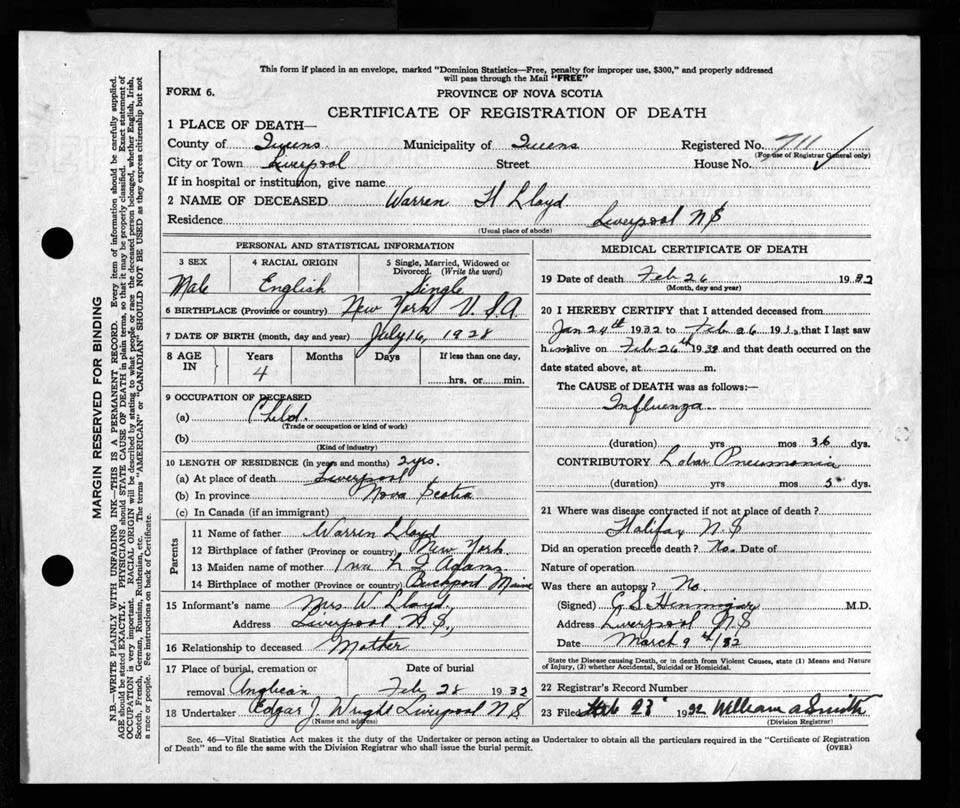 This form if placed in an envelope, marked "Dominion Statistics—Free, penalty for improper use, $300," and properly addressed
will pass through the Mail "FREE"
FORM 6.
PROVINCE OF NOVA SCOTIA
CERTIFICATE OF REGISTRATION OF DEATH
1 PLACE OF DEATH—
County of Queens Municipality of Queens Registered No. 7111
(For use of Registrar General only)
City or Town Liverpool Street House No.
If in hospital or institution, give name
2 NAME OF DECEASED Warren H Lloyd
Residence Liverpool N S
(Usual place of abode)
PERSONAL AND STATISTICAL INFORMATION
3 SEX 4 RACIAL ORIGIN 5 Single, Married, Widowed or
Divorced. (Write the word)
Male English Single
6 BIRTHPLACE (Province or country) New York U.S.A.
7 DATE OF BIRTH (month, day and year) July 16, 1928
8 AGE IN Years Months Days If less than one day,
4 hrs. or min.
9 OCCUPATION OF DECEASED
(a) Child.
(Trade or occupation or kind of work)
(b)
(Kind of industry)
10 LENGTH OF RESIDENCE (in years and months) 2 yrs.
(a) At place of death Liverpool
(b) In province Nova Scotia
(c) In Canada (if an immigrant)
Parents
11 Name of father Warren Lloyd
12 Birthplace of father (Province or country) New York.
13 Maiden name of mother Adams
14 Birthplace of mother (Province or country) Bucksport Maine
15 Informant's name Mrs W. Lloyd,
Address Liverpool N.S.,
16 Relationship to deceased Mother
17 Place of burial, cremation or Date of burial
removal Anglican Feb 28 1932
18 Undertaker Edgar J. Wright Liverpool N S
(Name and address)
MEDICAL CERTIFICATE OF DEATH
19 Date of death Feb 26 1932
(Month, day and year)
20 I HEREBY CERTIFY that I attended deceased from
Jan 24th 1932 to Feb 26 1932 that I last saw
him alive on Feb 26th 1932 and that death occurred on the
date stated above, at m.
The CAUSE of DEATH was as follows:—
Influenza.
(duration) yrs mos 36 dys.
CONTRIBUTORY Lobar Pneumonia
(duration) yrs mos 5 dys.
21 Where was disease contracted if not at place of death?
Halifax N S
Did an operation precede death? No. Date of
Nature of operation
Was there an autopsy? No.
(Signed) C. S. Hennigar M.D.
Address Liverpool N S
Date March 9th/32
State the Disease causing Death, or in death from Violent Causes, state (1) Means and Nature
of Injury, (2) whether Accidental, Suicidal or Homicidal.
22 Registrar's Record Number
23 Filed 1932 William A Smith
(Division Registrar)
Sec. 46—Vital Statistics Act makes it the duty of the Undertaker or person acting as Undertaker to obtain all the particulars required in the "Certificate of Registration
of Death" and to file the same with the Division Registrar who shall issue the burial permit.
(OVER)
MARGIN RESERVED FOR BINDING
N.B.—WRITE PLAINLY WITH UNFADING INK—THIS IS A PERMANENT RECORD. Every item of information should be carefully supplied.
AGE should be stated EXACTLY. PHYSICIANS should STATE CAUSE OF DEATH in plain terms, so that it may be properly classified. Exact statement of
OCCUPATION is very important. RACIAL ORIGIN will be described by stating to what people or race the deceased person belonged, whether English, Irish,
Scotch, French, German, Russian, Ruthenian, etc. The terms "AMERICAN" or "CANADIAN" SHOULD NOT BE USED as they express citizenship but not
a race or people. See instructions on back of Certificate.